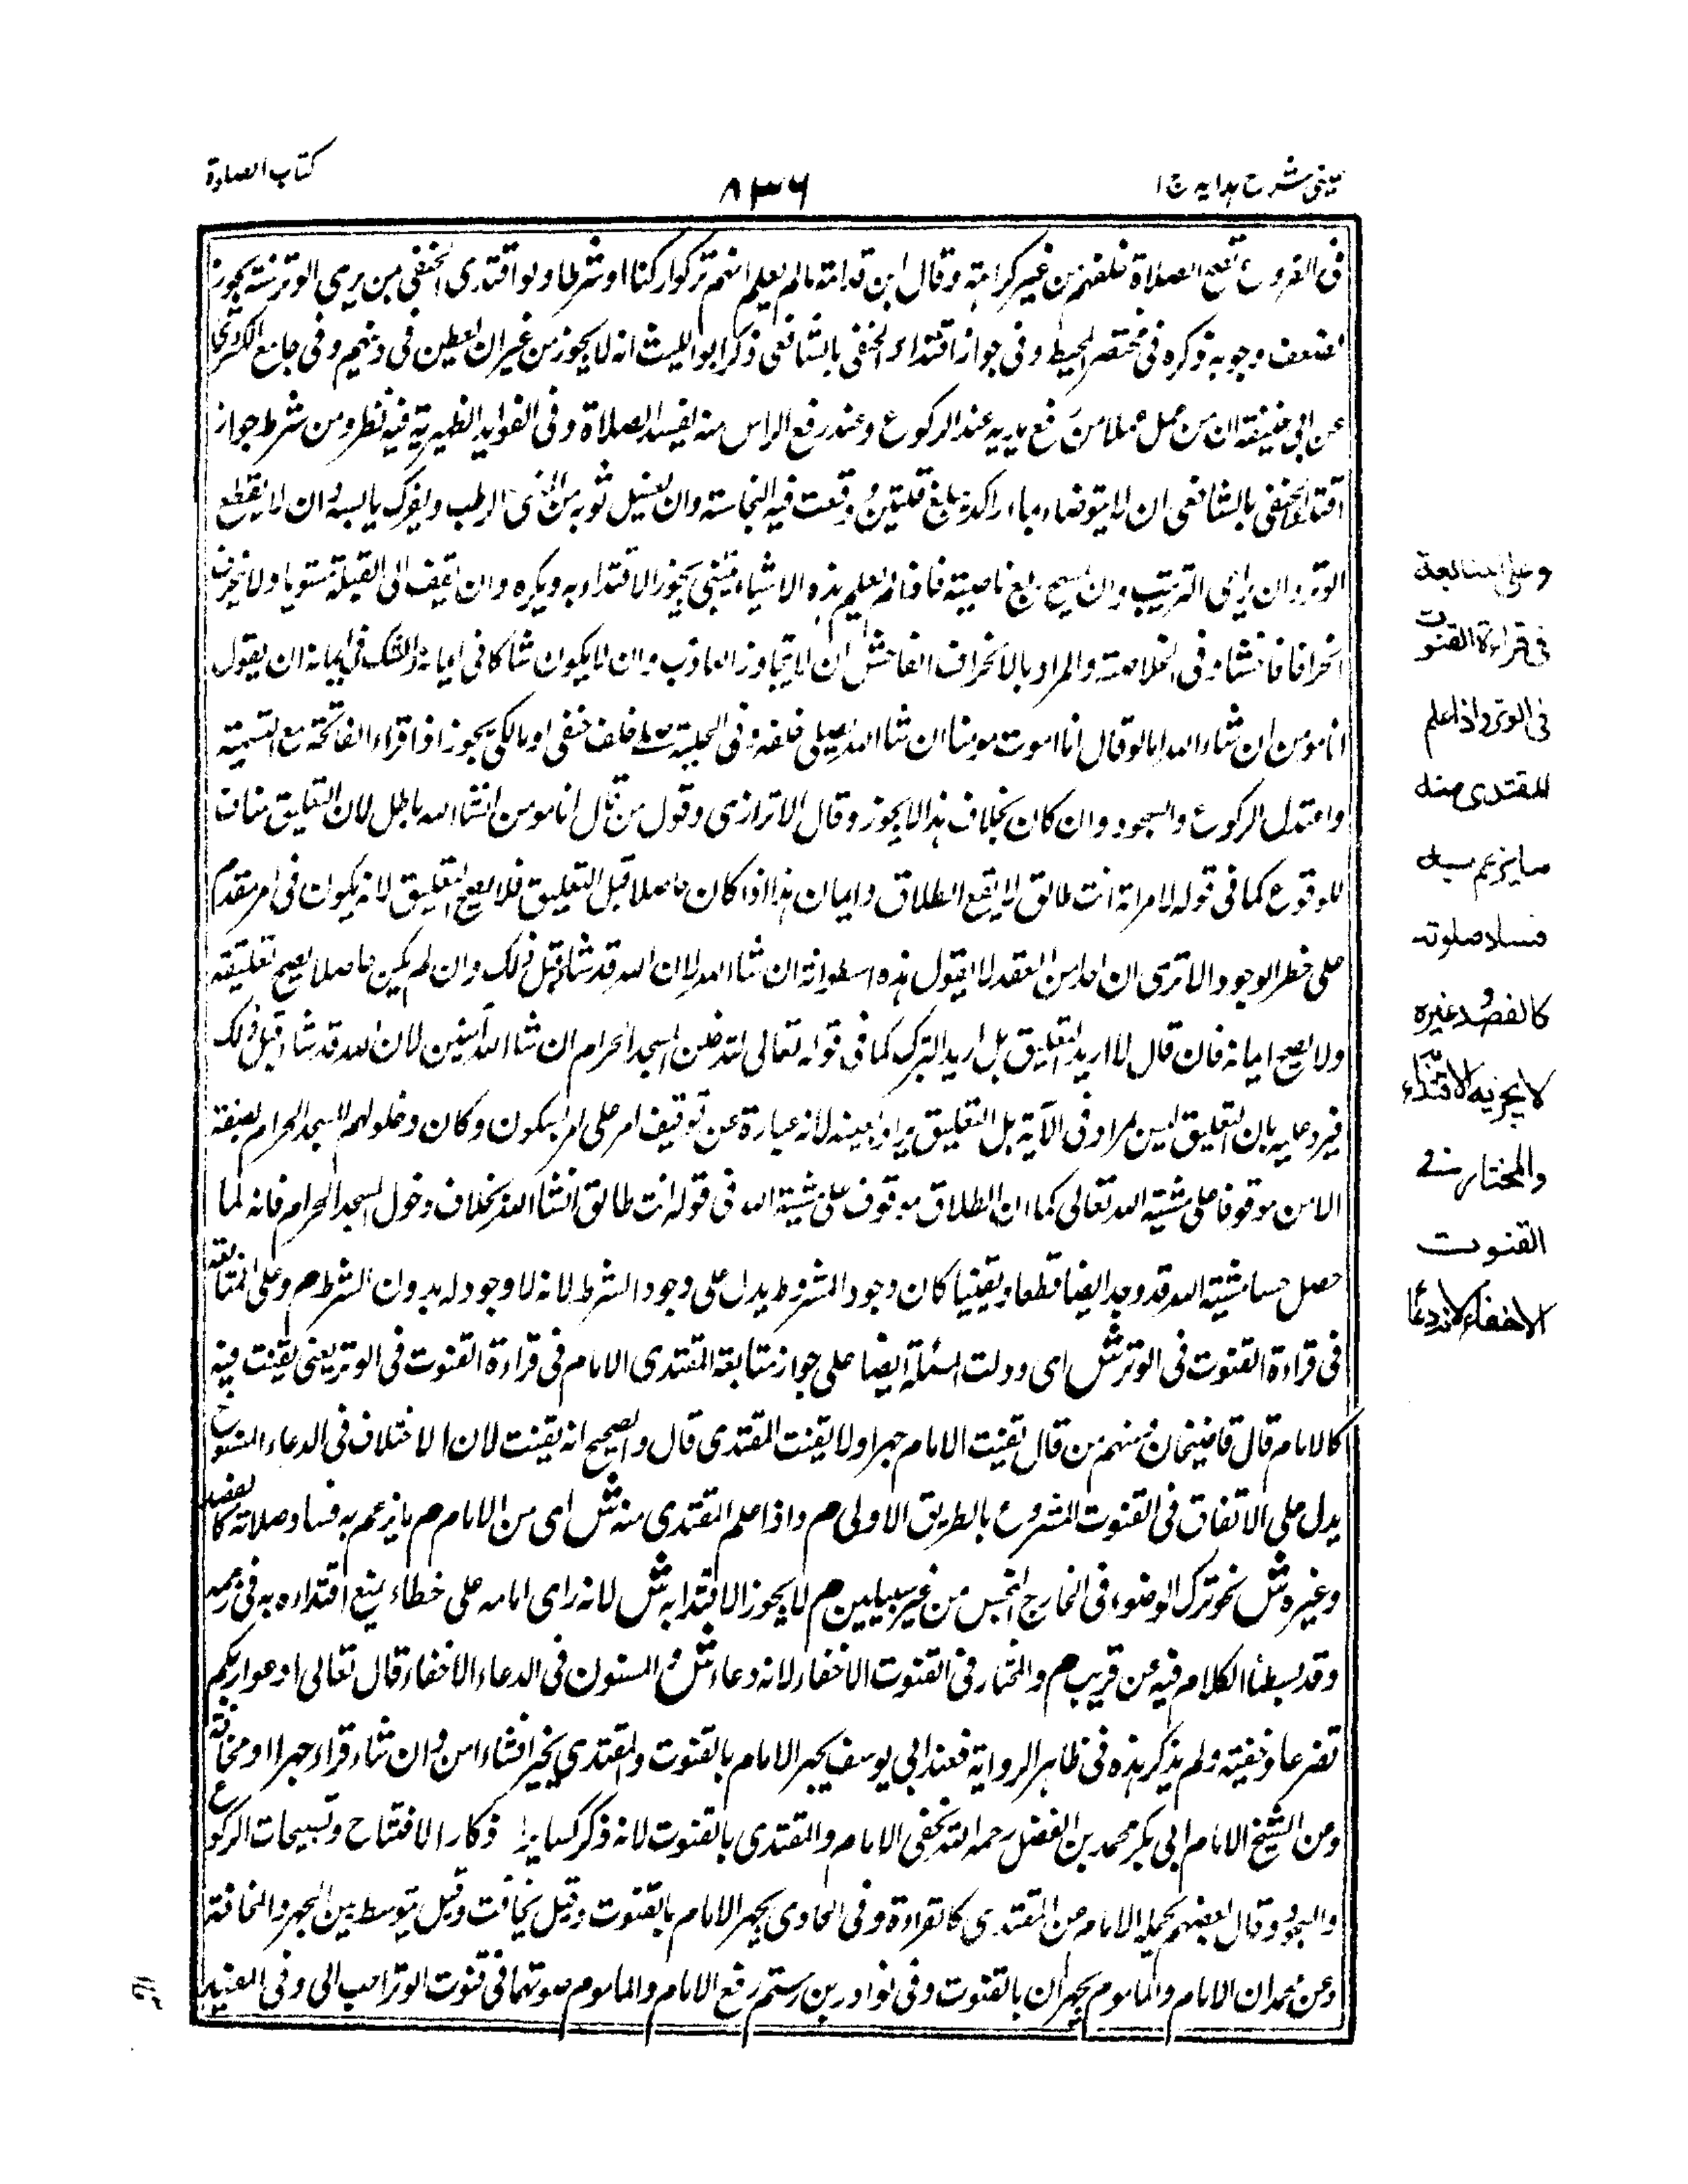 عینی شرح ہدایہ ج ۱
۸۳۶
كتاب الصلاة
فى الفروع تصح الصلاة خلفهم من غير كراهة وقال ابن قدامة مالم يعلم انهم تركوا ركنا او شرطا ولو اقتدى الحنفى بمن يرى الوتر سنة يجوز
لضعف وجوبه ذكره فى مختصر المحيط وفى جواز اقتداء الحنفى بالشافعى ذكر ابو الليث انه لا يجوز من غير ان يطعن فى دينهم وفى جامع الكردرى
عن ابى حنيفة ان من عمل عملا من رفع يديه عند الركوع وعند رفع الراس منه تفسد الصلاة وفى الفوايد الظهيرية فيه نظر ومن شرط جواز
اقتداء الحنفى بالشافعى ان لا يتوضاء بماء راكد بلغ قلتين وقعت فيه النجاسة وان يغسل ثوبه من المنى الرطب ويفرك يابسه وان لا يقطع
الوتر وان يراعى الترتيب وان يمسح ربع ناصيته فاذا لم يعلم هذه الاشياء يجوز الاقتداء به ويكره وان يقف الى القبلة مستويا ولا ينحرف
انحرافا فاحشا وفى الخلاصة والمراد بالانحراف الفاحش ان لا يتجاوز المغارب وان لا يكون شاكا فى ايمانه والشك فى ايمانه ان يقول
انا مؤمن ان شاء الله اما لو قال انا اموت مومنا ان شاء الله يصلى خلفه وفى صلى خلف حنفى او مالكى يجوز اذا قراء الفاتحة مع التسمية
واعتدل الركوع والسجود وان كان بخلاف هذا لا يجوز وقال الاترازى وقول من قال انا مومن انشاء الله باطل لان التعليق مناف
للوقوع كما فى قوله لامراته انت طالق لا يقع الطلاق وايمان هذا اذا كان حاصلا قبل التعليق فلا يصح التعليق لانه يكون فى امر مقدم
على خطر الوجود الا ترى ان احدا من العقد لا يقول هذه اسطوانة ان شاء الله لان الله قد شاء قبل ذلك وان لم يكن حاصلا يصح تعليقه
ولا يصح ايمانه فان قال لا اريد التعليق بل اريد التبرك كما فى قوله تعالى لتدخلن المسجد الحرام ان شاء الله آمنين لان الله قد شاء قبل ذلك
فيرد عليه بان التعليق ليس مراد فى الآية بل التعليق مراد بعينه لانه عبارة عن توقيف امر على امر سيكون وكان دخولهم المسجد الحرام بصفة
الامن موقوفا على مشية الله تعالى كما ان الطلاق موقوف على مشية الله فى قوله انت طالق انشاء الله بخلاف دخول المسجد الحرام فانه لما
حصل حسا مشية الله قد وجد ايضا قطعا ويقينا كان وجود المشروط يدل على وجود الشرط لانه لا وجود له بدون الشرط م وعلى المتابعة
فى قراءة القنوت فى الوتر ش اى ودلت المسئلة ايضا على جواز متابعة المقتدى الامام فى قراءة القنوت فى الوتر يعنى يقنت فيه
كالامام قال قاضيخان فمنهم من قال يقنت الامام جهرا ولا يقنت المقتدى قال والصحيح انه يقنت لان الاختلاف فى الدعاء المنسوخ
يدل على الاتفاق فى القنوت المشروع بالطريق الاولى م واذا علم المقتدى منه ش اى من الامام م ما يزعم به فساد صلاته كالفصد
وغيره ش نحو ترك الوضوء فى الخارج النجس من غير سبيلين م لا يجوز الاقتداء به ش لانه راى امامه على خطاء يمنع اقتداءه به فى زعمه
وقد بسطنا الكلام فيه عن قريب م والمختار فى القنوت الاخفاء لانه دعاء ش والمسنون فى الدعاء الاخفاء قال تعالى ادعوا ربكم
تضرعا وخفية ولم يذكر هذه فى ظاهر الرواية فعند ابى يوسف يجهر الامام بالقنوت والمقتدى يخير ان شاء امن وان شاء قراء جهرا او مخافتة
وعن الشيخ الامام ابى بكر محمد بن الفضل رحمه الله يخفى الامام والمقتدى بالقنوت لانه ذكر كساير اذكار الافتتاح وتسبيحات الركوع
والسجود وقال بعضهم يحمل الامام عن المقتدى كالقراءة وفى الحاوى يجهر الامام بالقنوت وقيل يخافت وقيل يتوسط بين الجهر والمخافتة
وعن محمد ان الامام والماموم يجهران بالقنوت وفى نوادر بن رستم رفع الامام والماموم صوتهما فى قنوت الوتر احب الى وفى المفيد
وعلى المتابعة
فى قراءة القنوت
فى الوتر واذا علم
المقتدى منه
ما يزعم به
فساد صلوته
كالفصد وغيره
لا يجزيه الاقتداء
والمختار فى
القنوت
الاخفاء لانه دعاء